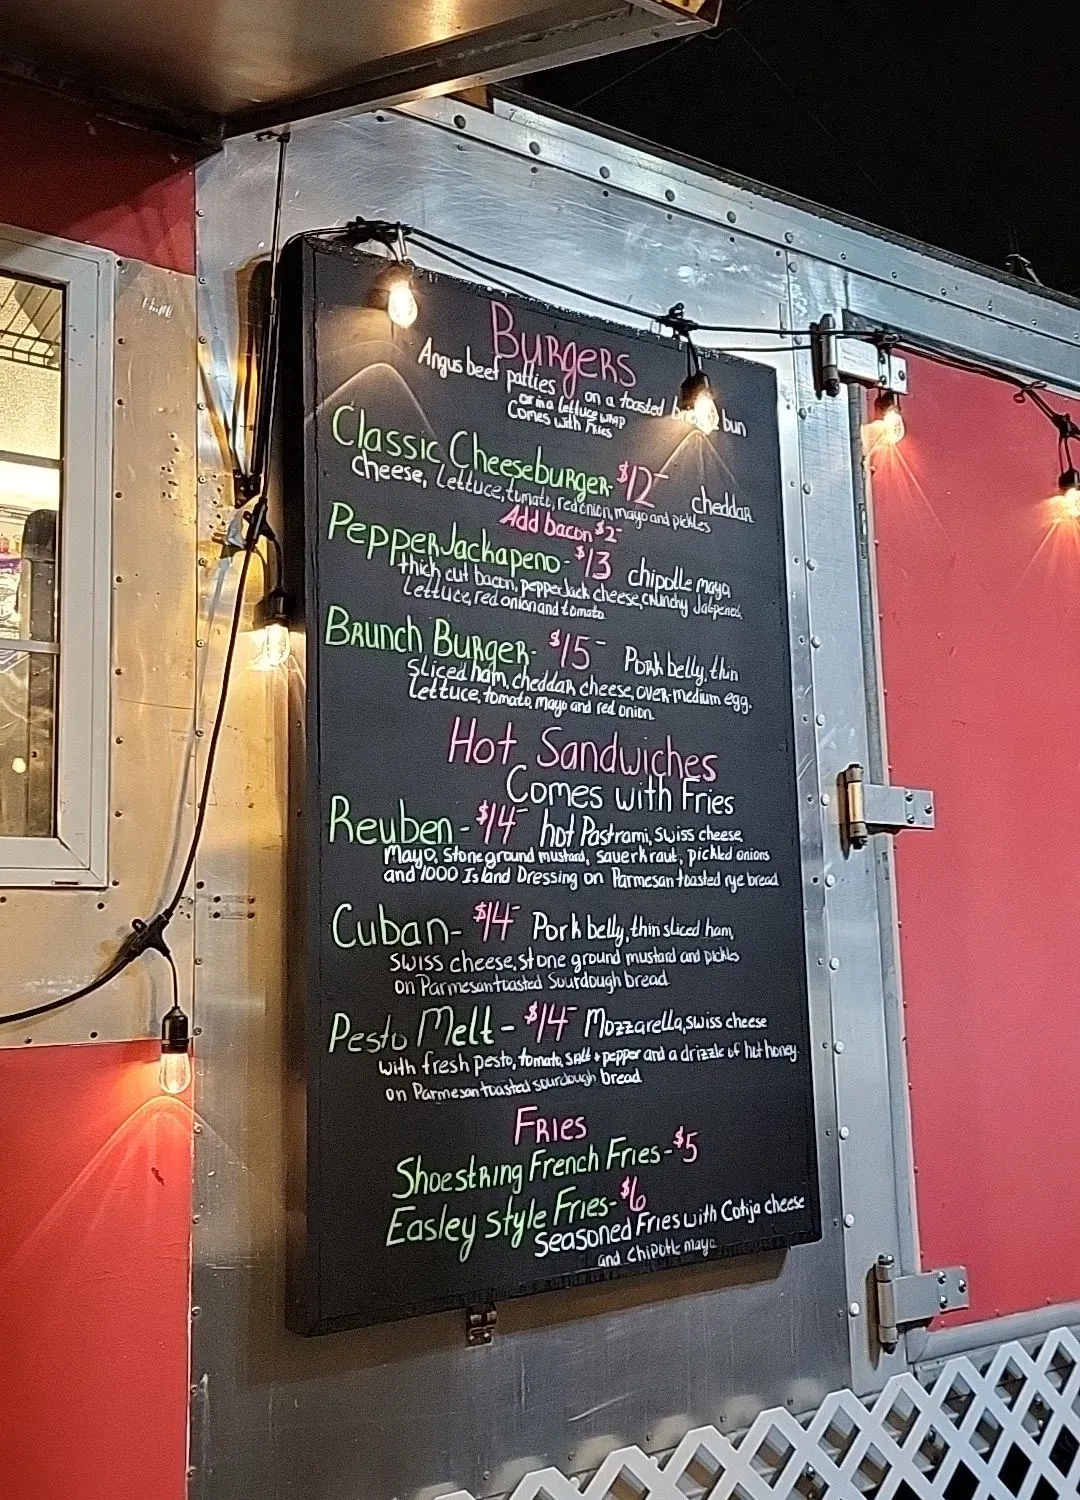 Burgers
Angus beef patties on a toasted bun
or in a Lettuce wrap
Comes with Fries
Classic Cheeseburger- $12- cheddar
cheese, Lettuce, tomato, red onion, mayo and pickles
Add bacon $2-
Pepper Jackapeno- $13 chipotle mayo,
thick cut bacon, pepperJack cheese, crunchy Jalapenos,
Lettuce, red onion and tomato
Brunch Burger- $15- Pork belly, thin
sliced ham, cheddar cheese, over-medium egg.
Lettuce, tomato, mayo and red onion.
Hot Sandwiches
Comes with Fries
Reuben- $14- hot Pastrami, Swiss cheese,
Mayo, Stone ground mustard, sauerkraut, pickled onions
and 1000 Island Dressing on Parmesan toasted rye bread
Cuban- $14- Pork belly, thin sliced ham,
swiss cheese, stone ground mustard and pickles
on Parmesan toasted Sourdough bread
Pesto Melt- $14- Mozzarella, swiss cheese
with fresh pesto, tomato, salt + pepper and a drizzle of hot honey
on Parmesan toasted sourdough bread
Fries
Shoestring French Fries- $5
Easley style Fries- $6
Seasoned Fries with Cotija cheese
and chipotle mayo